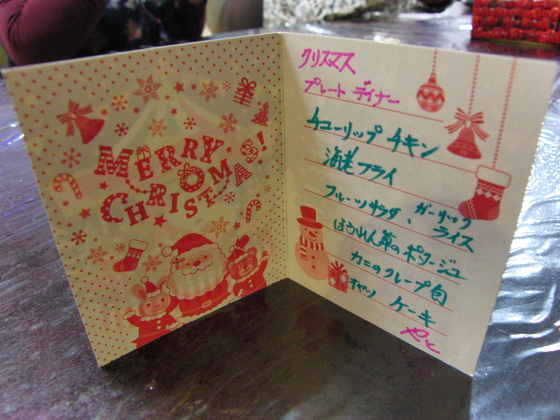 MERRY
CHRISTMAS!
クリスマス
プレート ディナー
チューリップ チキン
海老フライ
フルーツサラダ、ガーリック
ライス
ほうれん草のポタージュ
カニのクレープ包
ケーキ